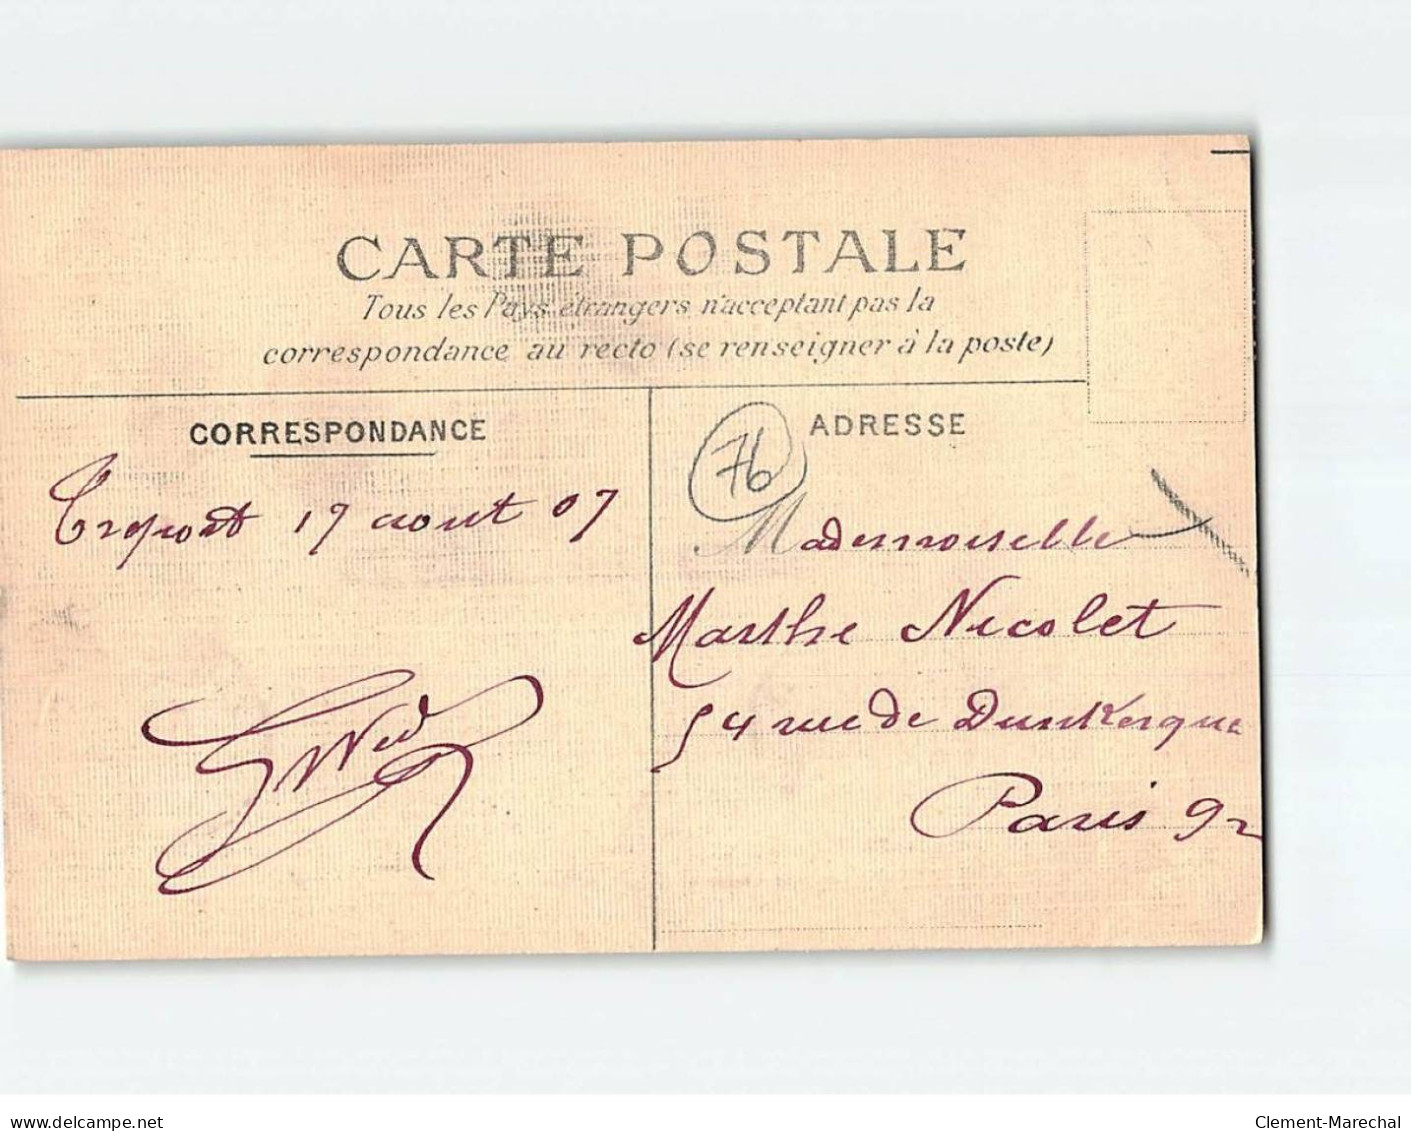 CARTE POSTALE
Tous les Pays étrangers n'acceptant pas la
correspondance au recto (se renseigner à la poste)
CORRESPONDANCE
Treport 17 aout 07
76
ADRESSE
Mademoiselle
Marthe Nicolet
54 rue de Dunkerque
Paris 9
www.delcampe.net
Clement-Marechal